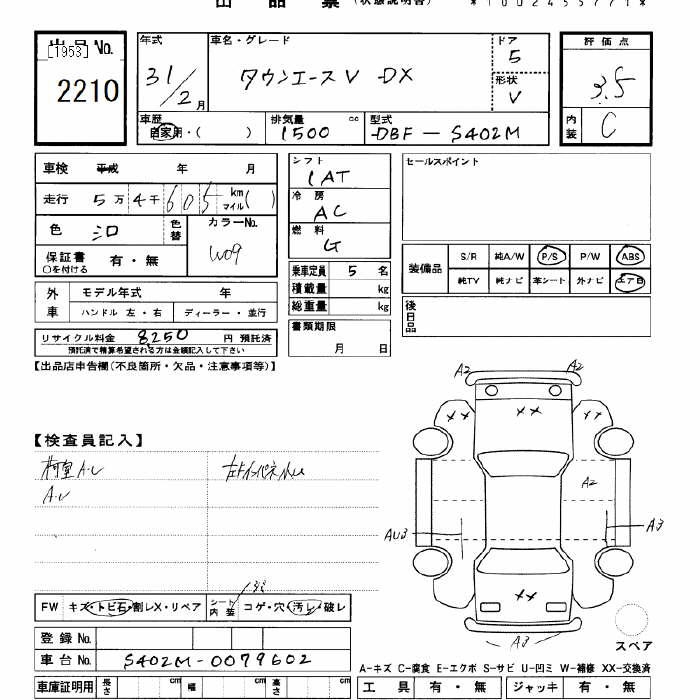 出品票 (状態説明書) *1002455771*
出品No. [1953]
2210
年式 31/2月
車名・グレード タウンエースV DX
ドア 5
形状 V
評価点 3.5
内装 C
車歴 自家用・( )
排気量 1500 cc
型式 DBF-S402M
車検 平成 年 月
走行 5万4千605 km マイル( )
色 シロ 色替
カラーNo. W09
保証書 有・無
○を付ける
シフト 1AT
冷房 AC
燃料 G
セールスポイント
装備品 S/R 純A/W P/S P/W ABS
純TV 純ナビ 革シート 外ナビ エア日
外車 モデル年式 年
ハンドル 左・右 ディーラー・並行
乗車定員 5 名
積載量 kg
総重量 kg
書類期限
月 日
後日品
リサイクル料金 8250 円 預託済
預託済で精算希望される方は金額記入して下さい
【出品店申告欄(不良箇所・欠品・注意事項等)】
A2 A2
XX XX XX
【検査員記入】
荷室A・U
A・U
A2
AU3 A3
XX
A3
スペア
FW キズ・トビ石・割レX・リペア シート内装 コゲ・穴・汚レ・破レ
登録No.
車台No. S402M-0079602
A-キズ C-腐食 E-エクボ S-サビ U-凹ミ W-補修 XX-交換済
車庫証明用 長さ cm 幅 cm 高さ cm
工具 有・無 ジャッキ 有・無